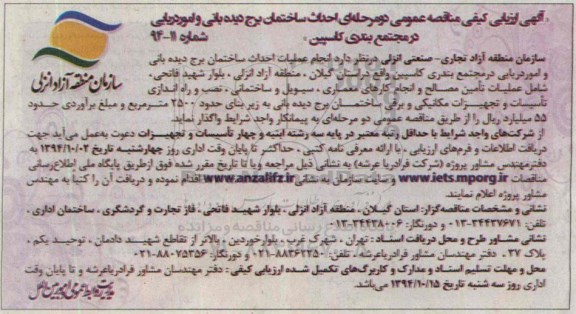 آگهی ارزیابی کیفی مناقصه عمومی دو مرحله‌ای احداث ساختمان برج دیده بانی و امور دریایی
در مجتمع بندری کاسپین» شماره ۱۱-۹۴
سازمان منطقه آزاد انزلی
سازمان منطقه آزاد تجاری- صنعتی انزلی در نظر دارد انجام عملیات احداث ساختمان برج دیده بانی
و امور دریایی در مجتمع بندری کاسپین واقع در استان گیلان ، منطقه آزاد انزلی ، بلوار شهید فاتحی،
شامل عملیات تأمین مصالح و انجام کارهای معماری ، سیویل و ساختمانی ، نصب و راه اندازی
تأسیسات و تجهیزات مکانیکی و برقی ساختمان برج دیده بانی به زیر بنای حدود ۲۵۰۰ مترمربع و مبلغ برآوردی حدود
۵۵ میلیارد ریال را از طریق مناقصه عمومی دو مرحله‌ای به پیمانکار واجد شرایط واگذار نماید.
از شرکت‌های واجد شرایط با حداقل رتبه معتبر در پایه سه رشته ابنیه و چهار تأسیسات و تجهیزات دعوت به‌عمل می‌آید جهت
دریافت اطلاعات و فرم‌های ارزیابی ، با ارائه معرفی نامه کتبی ، حداکثر تا پایان وقت اداری روز چهارشنبه تاریخ ۱۳۹۴/۱۰/۰۲ به
دفتر مهندس مشاور پروژه (شرکت فرادریا عرشه) به نشانی ذیل مراجعه و یا تا تاریخ مقرر شده فوق از طریق پایگاه ملی اطلاع‌رسانی
مناقصات www.iets.mporg.ir و سایت سازمان به نشانی www.anzalifz.ir اقدام نموده و دریافت آن را کتبا به مهندس
مشاور پروژه اعلام نمایند.
نشانی و مشخصات مناقصه‌گزار: استان گیلان ، منطقه آزاد انزلی ، بلوار شهید فاتحی، فاز تجارت و گردشگری ، ساختمان اداری ،
تلفن: ۳۴۴۳۷۶۷۱-۰۱۳ و دورنگار: ۳۴۴۳۸۰۰۶-۰۱۳
نشانی مشاور طرح و محل دریافت اسناد : تهران ، شهرک غرب ، بلوار خوردین ، بالاتر از تقاطع شهیدان دادمان ، توحید یکم ،
پلاک ۳۷ ، دفتر مهندسان مشاور فرادریاعرشه ، تلفن: ۸۸۳۶۲۲۵۰-۰۲۱ و دورنگار: ۸۸۰۷۵۳۵۶-۰۲۱
محل و مهلت تسلیم اسناد و مدارک و کاربرگ‌های تکمیل شده ارزیابی کیفی : دفتر مهندسان مشاور فرادریاعرشه و تا پایان وقت
اداری روز سه شنبه تاریخ ۱۳۹۴/۱۰/۱۵ می‌باشد.
مدیریت روابط عمومی و امور بین الملل